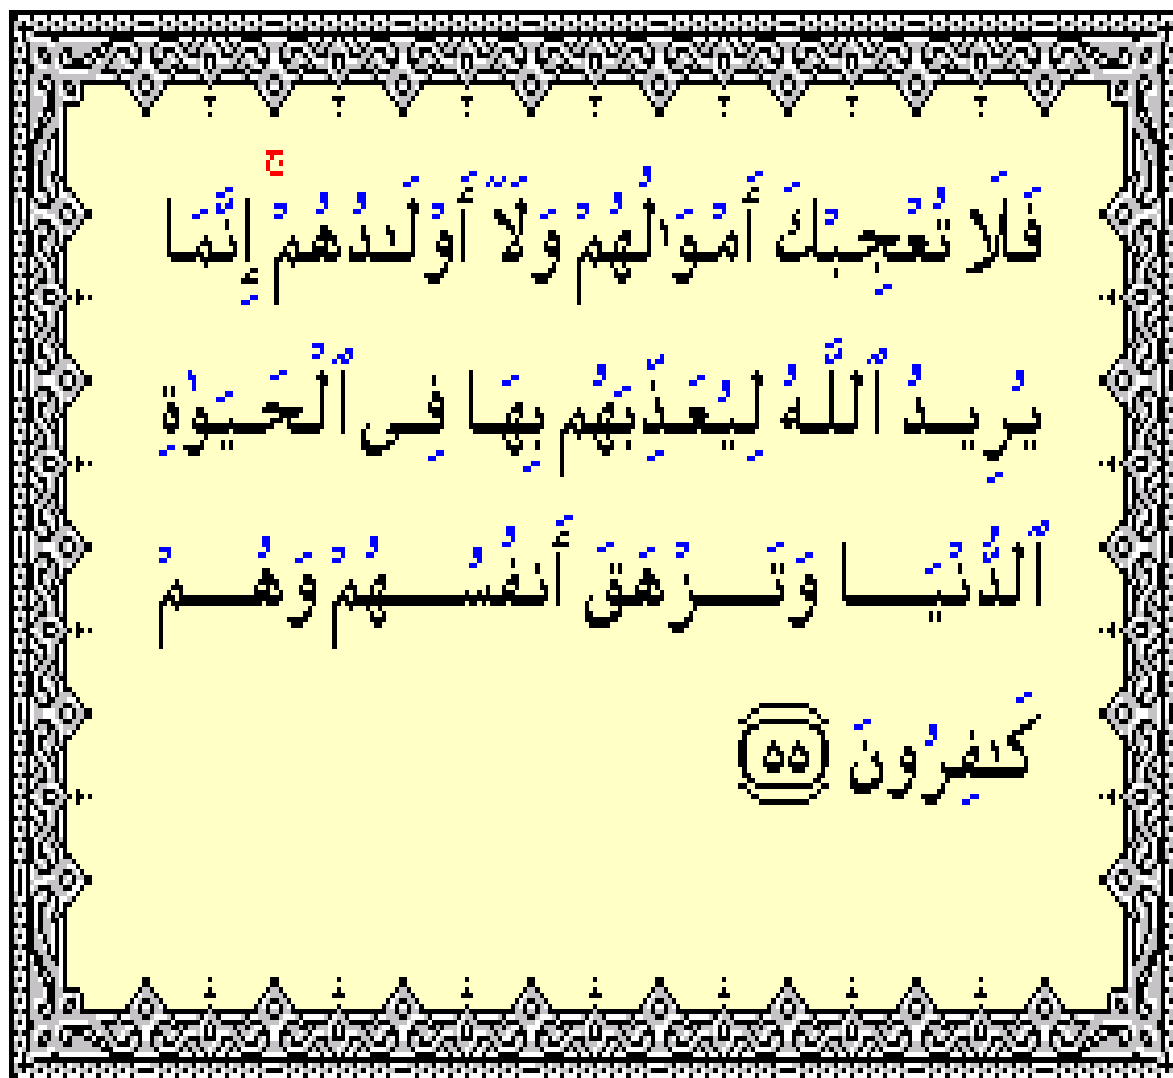 فَلَا تُعْجِبْكَ أَمْوَٰلُهُمْ وَلَآ أَوْلَـٰدُهُمْ ۚ إِنَّمَا
يُرِيدُ ٱللَّهُ لِيُعَذِّبَهُم بِهَا فِى ٱلْحَيَوٰةِ
ٱلدُّنْيَا وَتَزْهَقَ أَنفُسُهُمْ وَهُمْ
كَـٰفِرُونَ ۵۵